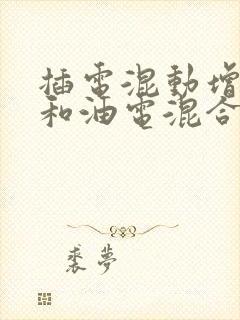 插電混動增
和油電混合
裘夢